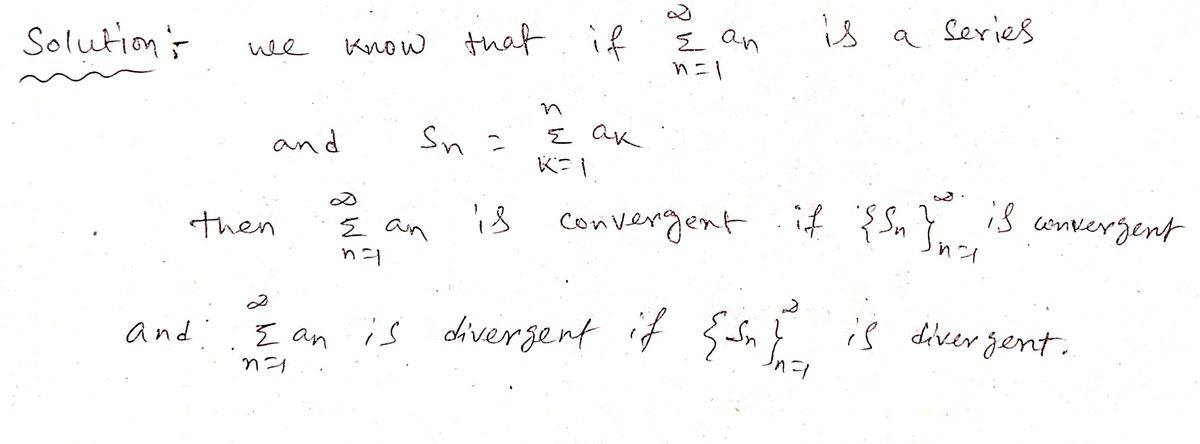 Solution:- we know that if ∞Σn=1 an is a series
and Sn = nΣk=1 ak
then ∞Σn=1 an is convergent if {Sn}∞n=1 is convergent
and ∞Σn=1 an is divergent if {Sn}∞n=1 is divergent.